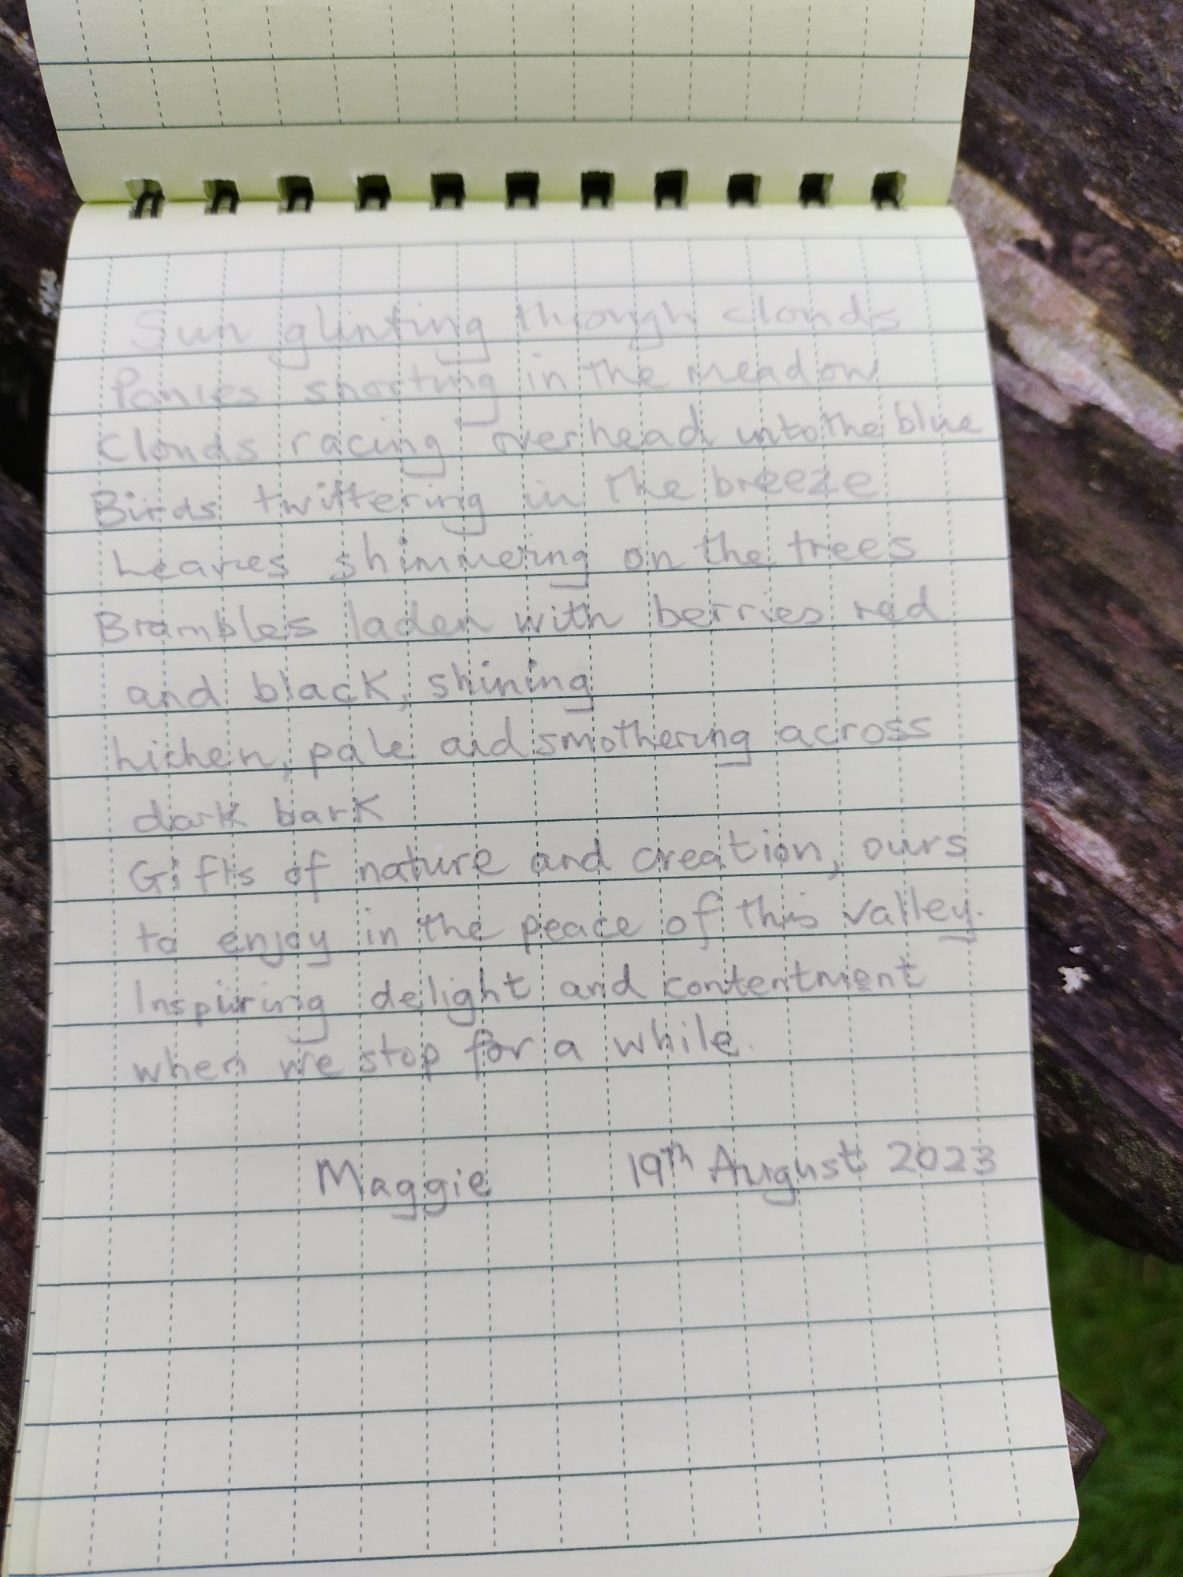 Sun glinting through clouds
Ponies snorting in the meadow
Clouds racing overhead into the blue
Birds twittering in the breeze
Leaves shimmering on the trees
Brambles laden with berries red
and black, shining
Lichen, pale and smothering across
dark bark
Gifts of nature and creation, ours
to enjoy in the peace of this valley.
Inspiring delight and contentment
when we stop for a while.
Maggie 19th August 2023